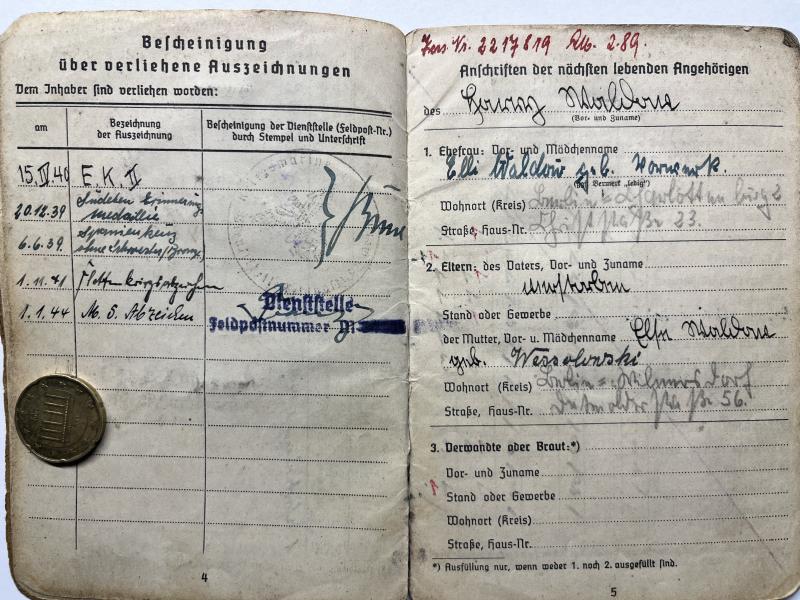 Bescheinigung
über verliehene Auszeichnungen
Dem Inhaber sind verliehen worden:
am
Bezeichnung
der Auszeichnung
Bescheinigung der Dienststelle (Feldpost-Nr.)
durch Stempel und Unterschrift
15.IV.40 E. K. II
20.12.39 Sudeten Erinnerung
medaille
6.6.39. Spanienkreuz
ohne Schwerter/Bronze
1.11.41 Flottenkriegsabzeichen
1.1.44 M. S. Abzeichen
Dienststelle
Feldpostnummer M
4
2217819 2.89.
Anschriften der nächsten lebenden Angehörigen
des Waldow
(Vor- und Zuname)
1. Ehefrau: Vor- und Mädchenname
Elli Waldow geb. Vorwerk.
(ggf. Vermerk „ledig")
Wohnort (Kreis) Berlin-Charlottenburg 2
Straße, Haus-Nr. 23.
2. Eltern: des Vaters, Vor- und Zuname
verstorben
Stand oder Gewerbe
der Mutter, Vor- u. Mädchenname Else Waldow
geb. Wessolowski
Wohnort (Kreis) Berlin-Wilmersdorf
Straße, Haus-Nr. Detmolderstraße 56.
3. Verwandte oder Braut:*)
Vor- und Zuname
Stand oder Gewerbe
Wohnort (Kreis)
Straße, Haus-Nr.
*) Ausfüllung nur, wenn weder 1. noch 2. ausgefüllt sind.
5